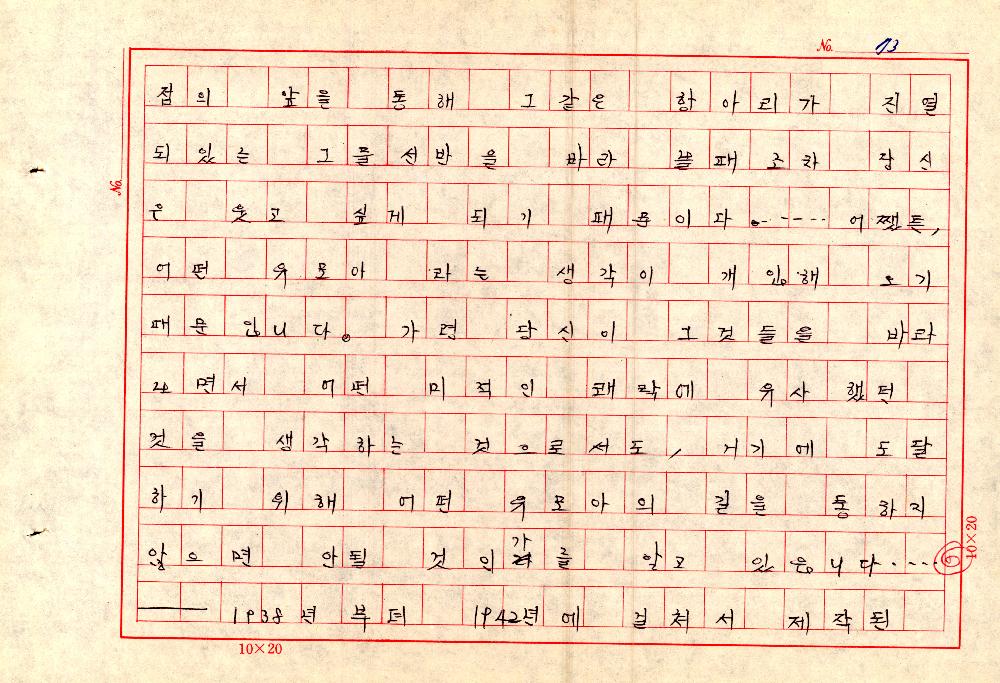 No. 73
점의 앞을 통해 그같은 항아리가 진열
되있는 그들선반을 바라 볼때조차 당신
우 웃고 싶게 되기 때문이다. ---- 어쨌든,
어떤 유모아 라는 생각이 개입해 오기
때문 입니다. 가령 당신이 그것들을 바라
보면서 어떤 미적인 쾌락에 유사했던
것을 생각하는 것으로서도, 거기에 도달
하기 위해 어떤 유모아의 길을 통하지
않으면 안될 것인가를 알고 있읍니다....
10×20
No.
—— 1938년 부터 1942년에 걸쳐서 제작된
10×20